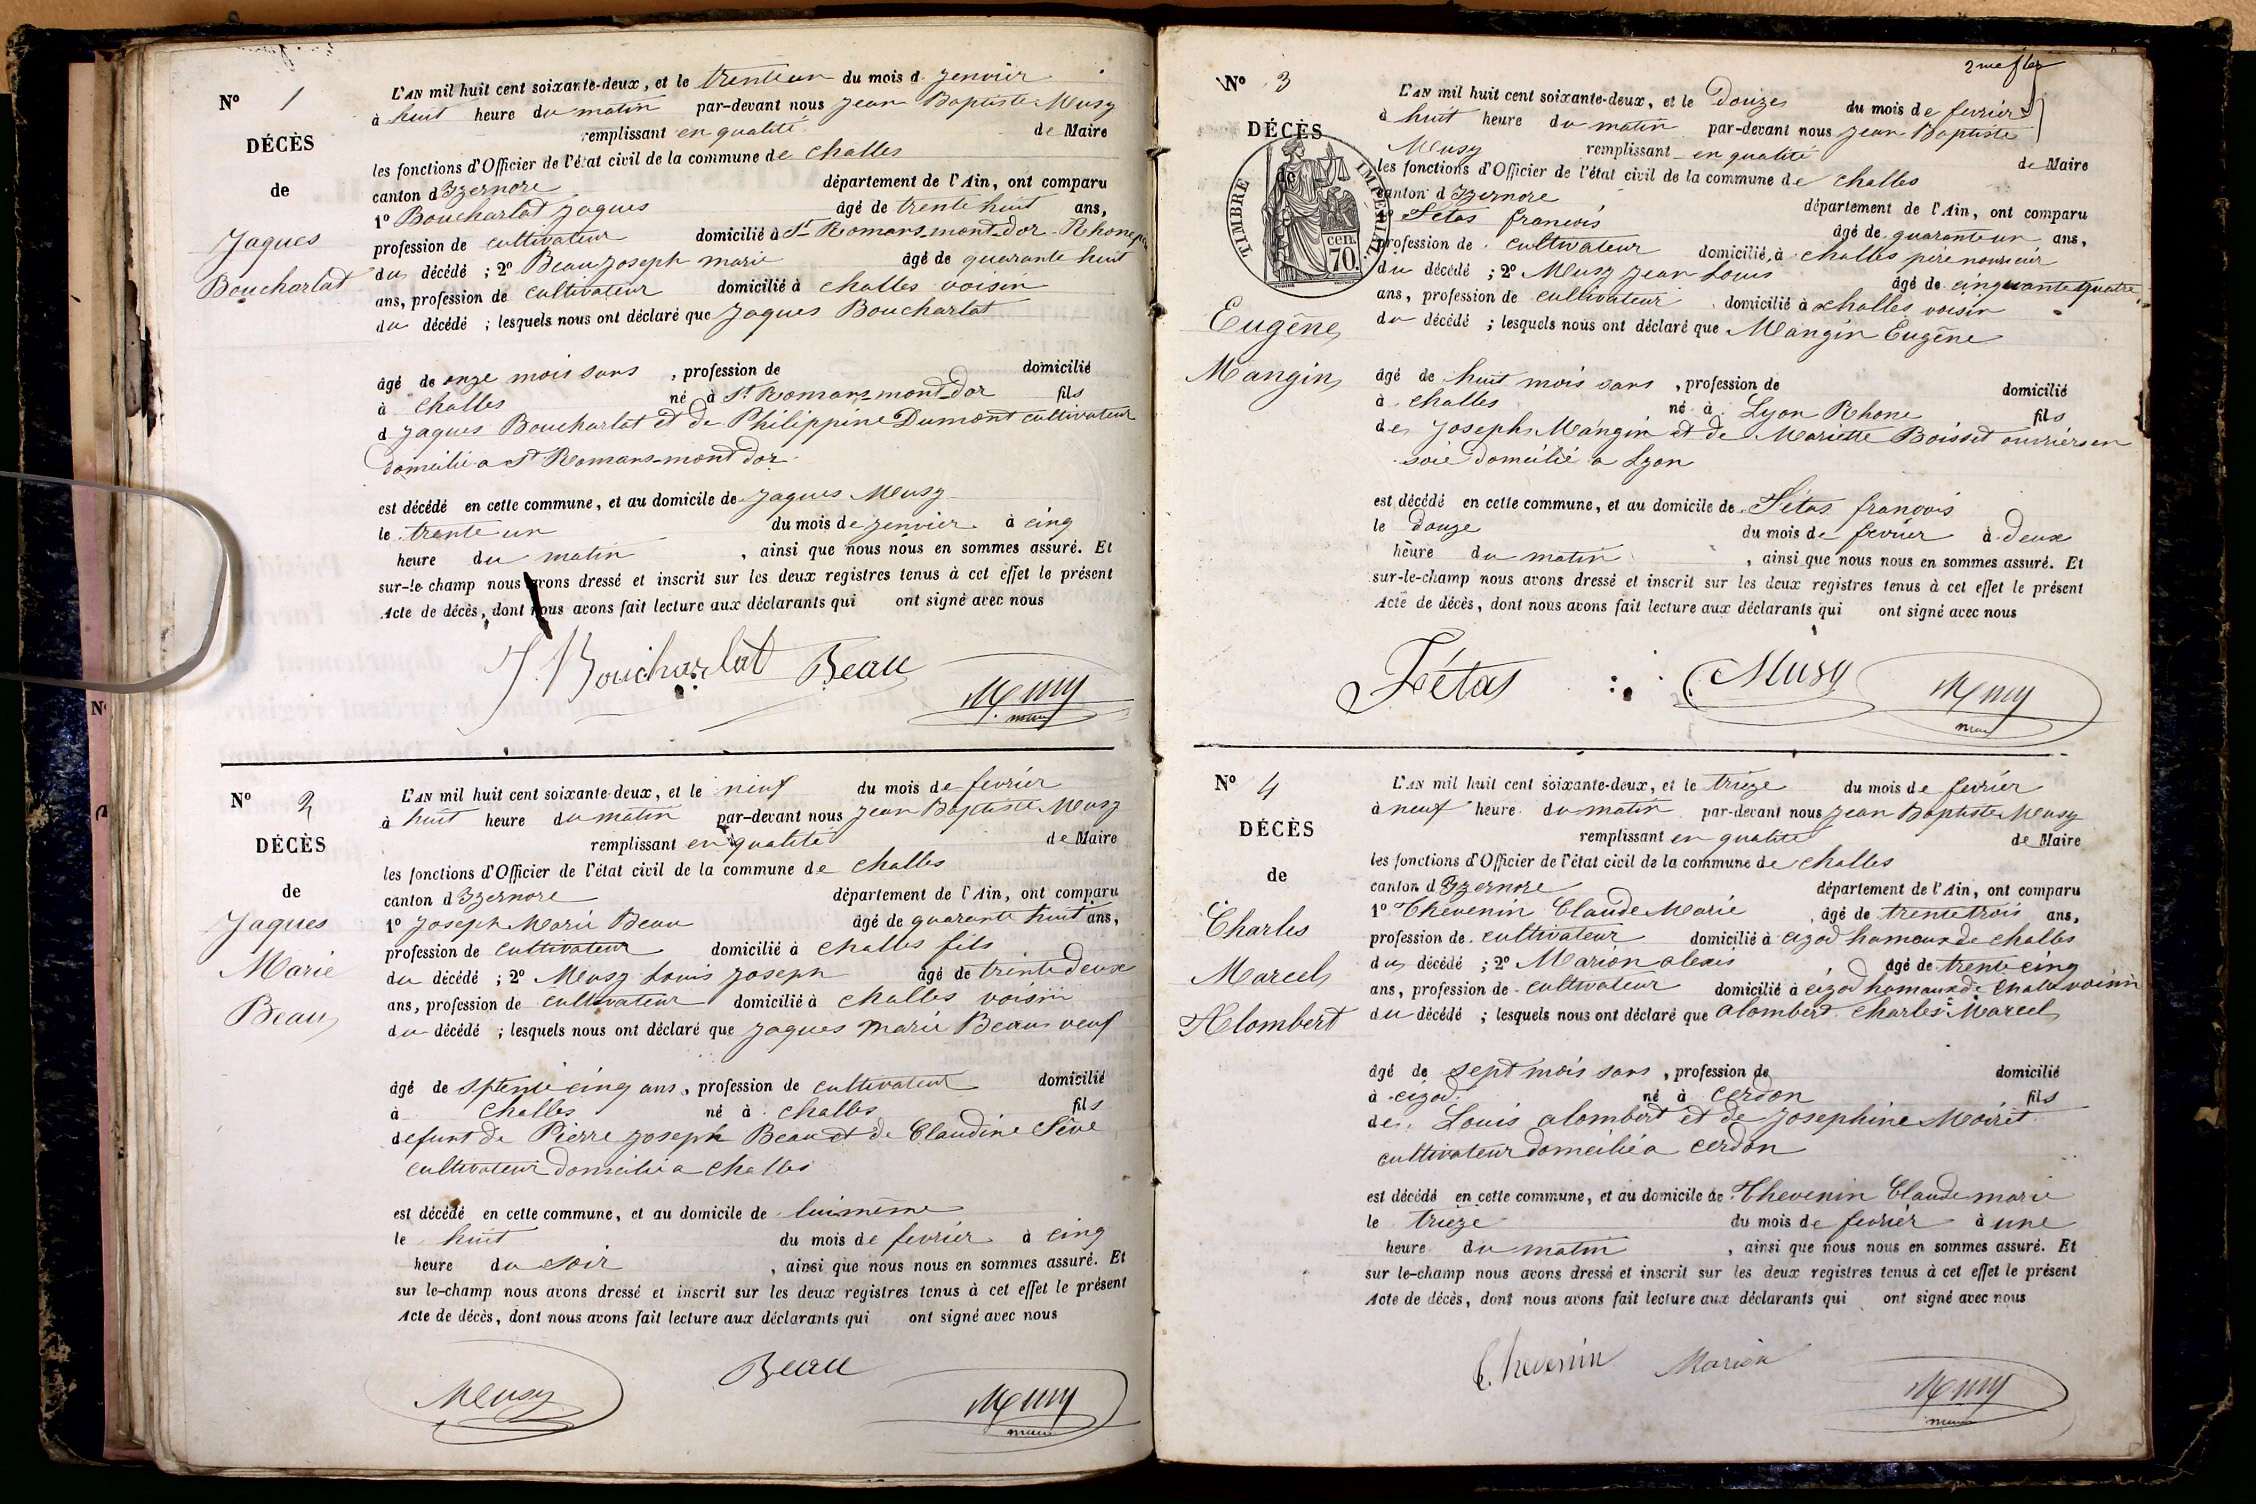 N° 1
DÉCÈS
de
Jaques
Boucharlat
L'AN mil huit cent soixante-deux, et le trente un du mois d jenvier
à huit heure du matin par-devant nous Jean Baptiste Musy
remplissant en qualité de Maire
les fonctions d'Officier de l'état civil de la commune de challes
canton d'Izernore département de l'Ain, ont comparu
1° Boucharlat Jaques âgé de trente huit ans,
profession de cultivateur domicilié à St Romans-mont-dor Rhone
du décédé ; 2° Beau joseph marie âgé de quarante huit
ans, profession de cultivateur domicilié à challes voisin
du décédé ; lesquels nous ont déclaré que Jaques Boucharlat
âgé de onze mois sans , profession de domicilié
à challes né à St Romans-mont-dor fils
d Jaques Boucharlat et de Philippine Dumont cultivateur
domcilié a St Romans-mont dor
est décédé en cette commune, et au domicile de Jaques Musy
le trente un du mois de jenvier à cinq
heure du matin , ainsi que nous nous en sommes assuré. Et
sur-le-champ nous avons dressé et inscrit sur les deux registres tenus à cet effet le présent
Acte de décès, dont nous avons fait lecture aux déclarants qui ont signé avec nous
J. Boucharlat Beau Musy
maire
N° 2
DÉCÈS
de
Jaques
Marie
Beau
L'AN mil huit cent soixante-deux, et le neuf du mois de fevrier
à huit heure du matin par-devant nous Jean Baptiste Musy
remplissant en qualité de Maire
les fonctions d'Officier de l'état civil de la commune de challes
canton d'Izernore département de l'Ain, ont comparu
1° Joseph Marie Beau âgé de quarante huit ans,
profession de cultivateur domicilié à challes fils
du décédé ; 2° Musy Louis joseph âgé de trente deux
ans, profession de cultivateur domicilié à challes voisin
du décédé ; lesquels nous ont déclaré que Jaques marie Beau veuf
âgé de sptente cinq ans , profession de cultivateur domicilié
à challes né à challes fils
defunt de Pierre joseph Beau et de Claudine Sève
cultivateur domcilié a challes
est décédé en cette commune, et au domicile de lui même
le huit du mois de fevrier à cinq
heure du soir , ainsi que nous nous en sommes assuré. Et
sur le-champ nous avons dressé et inscrit sur les deux registres tenus à cet effet le présent
Acte de décès, dont nous avons fait lecture aux déclarants qui ont signé avec nous
Musy Beau Musy
maire
N° 3
DÉCÈS
de
TIMBRE IMPÉRIAL
cen. 70.
Eugène
Mangin
L'AN mil huit cent soixante-deux, et le Douze du mois de fevrier
à huit heure du matin par-devant nous Jean Baptiste
Musy remplissant en qualité de Maire
les fonctions d'Officier de l'état civil de la commune de challes
canton d Izernore département de l'Ain, ont comparu
Fétas francois âgé de quarante un ans,
profession de cultivateur domicilié à challes père nourricier
du décédé ; 2° Musy Jean Louis âgé de cinquante quatre
ans, profession de cultivateur domicilié à challes voisin
du décédé ; lesquels nous ont déclaré que Mangin Eugène
âgé de huit mois sans , profession de domicilié
à challes né à Lyon Rhone fils
de Joseph Mangin et de Mariette Boisset ouvriers en
soie domcilié a Lyon
est décédé en cette commune, et au domicile de Fétas francois
le douze du mois de fevrier à deux
heure du matin , ainsi que nous nous en sommes assuré. Et
sur-le-champ nous avons dressé et inscrit sur les deux registres tenus à cet effet le présent
Acte de décès, dont nous avons fait lecture aux déclarants qui ont signé avec nous
Fétas Musy Musy
maire
N° 4
DÉCÈS
de
Charles
Marcel
Alombert
L'AN mil huit cent soixante-deux, et le trieze du mois de fevrier
à neuf heure du matin par-devant nous Jean Baptiste Musy
remplissant en qualité de Maire
les fonctions d'Officier de l'état civil de la commune de challes
canton d Izernore département de l'Ain, ont comparu
1° Thevenin Claude Marie âgé de trente trois ans,
profession de cultivateur domicilié à cizod hameaux de challes
du décédé ; 2° Marion alexis âgé de trente cinq
ans, profession de cultivateur domicilié à cizod hameaux de challes voisin
du décédé ; lesquels nous ont déclaré que alombert charles Marcel
âgé de sept mois sans , profession de domicilié
à cizod né à cerdon fils
de Louis alombert et de Josephine Moiret
cultivateur domcilié a cerdon
est décédé en cette commune, et au domicile de Thevenin Claude marie
le trieze du mois de fevrier à une
heure du matin , ainsi que nous nous en sommes assuré. Et
sur le-champ nous avons dressé et inscrit sur les deux registres tenus à cet effet le présent
Acte de décès, dont nous avons fait lecture aux déclarants qui ont signé avec nous
C. Thevenin Marion Musy
maire